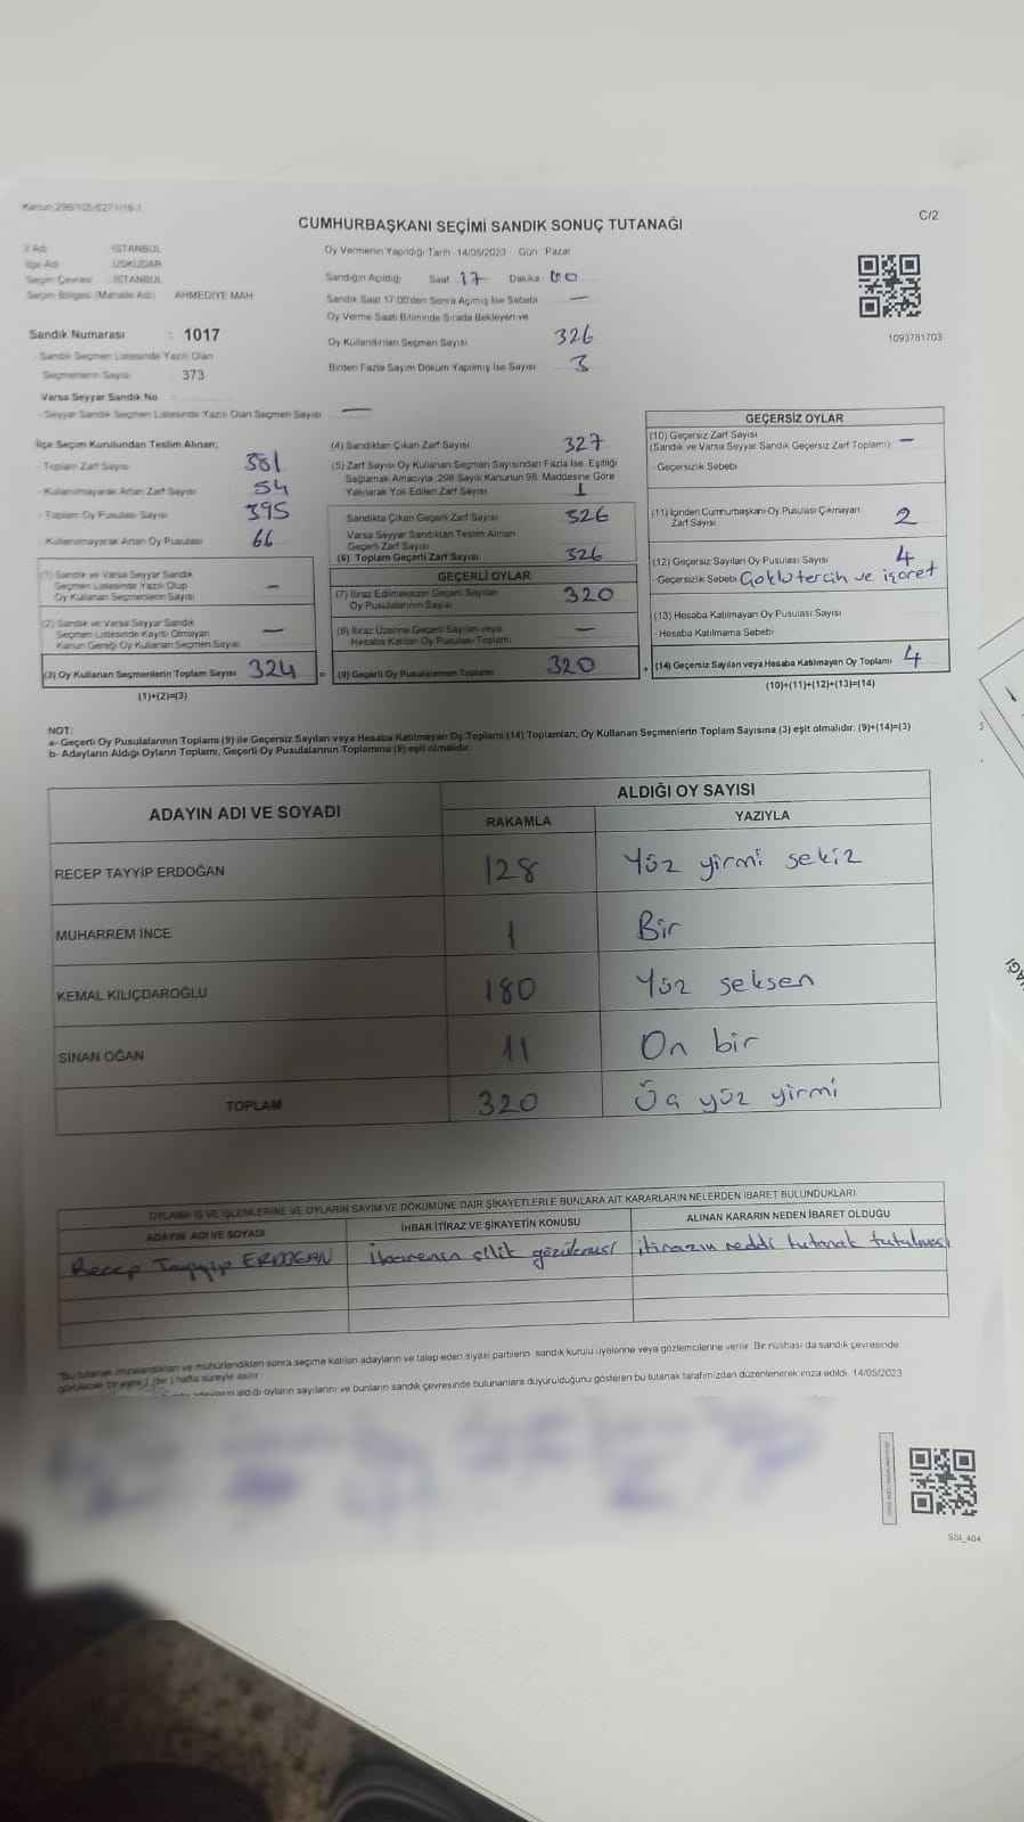 Kanun:298/105-6271/16-1
C/2
CUMHURBAŞKANI SEÇİMİ SANDIK SONUÇ TUTANAĞI
İl Adı : İSTANBUL
İlçe Adı : ÜSKÜDAR
Seçim Çevresi : İSTANBUL
Seçim Bölgesi (Mahalle Adı) : AHMEDİYE MAH
Sandık Numarası : 1017
Sandık Seçmen Listesinde Yazılı Olan
Seçmenlerin Sayısı : 373
Varsa Seyyar Sandık No
- Seyyar Sandık Seçmen Listesinde Yazılı Olan Seçmen Sayısı —
Oy Vermenin Yapıldığı Tarih 14/05/2023 Gün : Pazar
Sandığın Açıldığı Saat 17 Dakika 00
Sandık Saat 17:00'den Sonra Açılmış İse Sebebi —
Oy Verme Saati Bitiminde Sırada Bekleyen ve
Oy Kullandırılan Seçmen Sayısı 326
Birden Fazla Sayım Döküm Yapılmış İse Sayısı 3
1093781703
İlçe Seçim Kurulundan Teslim Alınan;
- Toplam Zarf Sayısı 381
- Kullanılmayarak Artan Zarf Sayısı 54
- Toplam Oy Pusulası Sayısı 395
- Kullanılmayarak Artan Oy Pusulası 66
(1) Sandık ve Varsa Seyyar Sandık
Seçmen Listesinde Yazılı Olup
Oy Kullanan Seçmenlerin Sayısı —
(2) Sandık ve Varsa Seyyar Sandık
Seçmen Listesinde Kayıtlı Olmayan
Kanun Gereği Oy Kullanan Seçmen Sayısı —
(3) Oy Kullanan Seçmenlerin Toplam Sayısı 324 =
(1)+(2)=(3)
(4) Sandıktan Çıkan Zarf Sayısı 327
(5) Zarf Sayısı Oy Kullanan Seçmen Sayısından Fazla İse, Eşitliği
Sağlamak Amacıyla 298 Sayılı Kanunun 98. Maddesine Göre
Yakılarak Yok Edilen Zarf Sayısı 1
Sandıkta Çıkan Geçerli Zarf Sayısı 326
Varsa Seyyar Sandıktan Teslim Alınan
Geçerli Zarf Sayısı
(6) Toplam Geçerli Zarf Sayısı 326
GEÇERLİ OYLAR
(7) İtiraz Edilmeksizin Geçerli Sayılan
Oy Pusulalarının Sayısı 320
(8) İtiraz Üzerine Geçerli Sayılan veya
Hesaba Katılan Oy Pusulası Toplamı —
(9) Geçerli Oy Pusulalarının Toplamı 320 +
GEÇERSİZ OYLAR
(10) Geçersiz Zarf Sayısı
(Sandık ve Varsa Seyyar Sandık Geçersiz Zarf Toplamı) —
- Geçersizlik Sebebi
(11) İçinden Cumhurbaşkanı Oy Pusulası Çıkmayan
Zarf Sayısı 2
(12) Geçersiz Sayılan Oy Pusulası Sayısı 4
- Geçersizlik Sebebi Çoklu tercih ve işaret
(13) Hesaba Katılmayan Oy Pusulası Sayısı
- Hesaba Katılmama Sebebi
(14) Geçersiz Sayılan veya Hesaba Katılmayan Oy Toplamı 4
(10)+(11)+(12)+(13)=(14)
NOT:
a- Geçerli Oy Pusulalarının Toplamı (9) ile Geçersiz Sayılan veya Hesaba Katılmayan Oy Toplamı (14) Toplamları, Oy Kullanan Seçmenlerin Toplam Sayısına (3) eşit olmalıdır. (9)+(14)=(3)
b- Adayların Aldığı Oyların Toplamı, Geçerli Oy Pusulalarının Toplamına (9) eşit olmalıdır.
ADAYIN ADI VE SOYADI
ALDIĞI OY SAYISI
RAKAMLA YAZIYLA
RECEP TAYYİP ERDOĞAN 128 Yüz yirmi sekiz
MUHARREM İNCE 1 Bir
KEMAL KILIÇDAROĞLU 180 Yüz seksen
SİNAN OĞAN 11 On bir
TOPLAM 320 Üç yüz yirmi
OYLAMA İŞ VE İŞLEMLERİNE VE OYLARIN SAYIM VE DÖKÜMÜNE DAİR ŞİKAYETLERLE BUNLARA AİT KARARLARIN NELERDEN İBARET BULUNDUKLARI
ADAYIN ADI VE SOYADI İHBAR İTİRAZ VE ŞİKAYETİN KONUSU ALINAN KARARIN NEDEN İBARET OLDUĞU
Recep Tayyip ERDOĞAN itirazın reddi tutanak tutulması
Bu tutanak imzalandıktan ve mühürlendikten sonra seçime katılan adayların ve talep eden siyasi partilerin, sandık kurulu üyelerine veya gözlemcilerine verilir. Bir nüshası da sandık çevresinde
aldığı oyların sayılarını ve bunların sandık çevresinde bulunanlara duyurulduğunu gösteren bu tutanak tarafımızdan düzenlenerek imza edildi. 14/05/2023
SSI_404